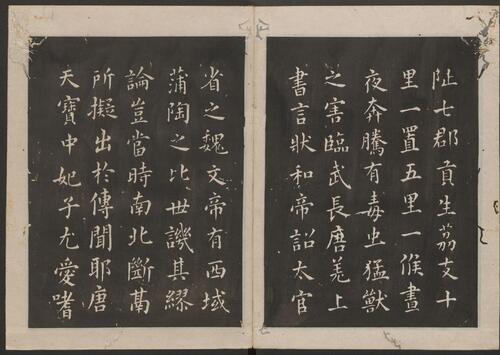 阯七郡貢生茘支十
里一置五里一候晝
夜奔騰有毒虫猛獸
之害臨武長唐羌上
書言狀和帝詔太官
省之魏文帝有西域
蒲陶之比世譏其繆
論豈當時南北斷鬲
所擬出於傳聞耶唐
天寶中妃子尤愛嗜